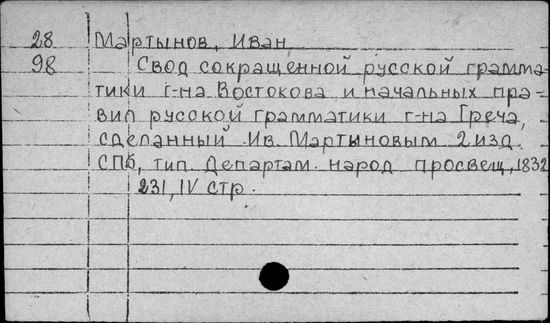 28 Мартынов, Иван
98 Свод сокращенной русской грамма-
тики г-на Востокова и начальных пра-
вил русской грамматики г-на Греча,
сделанный Ив. Мартыновым 2 изд.
СПб, тип. Департам. народ просвещ, 1832
231, IV стр.